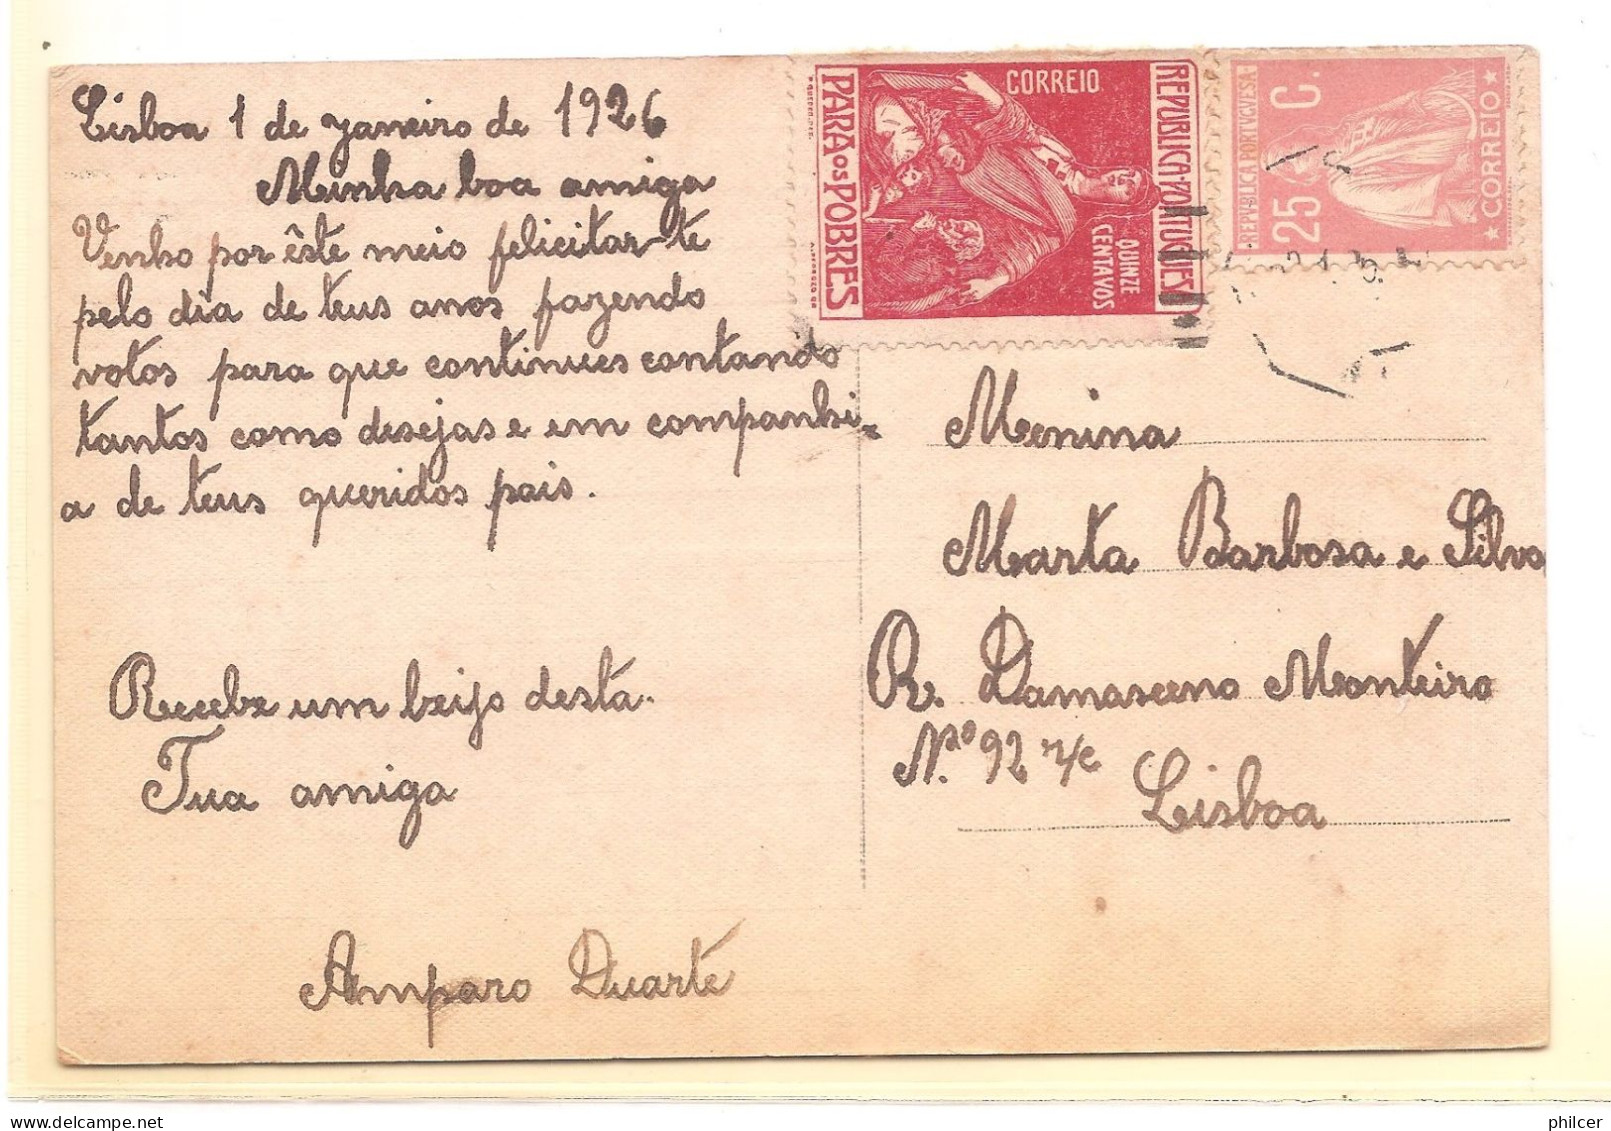 Lisboa 1 de janeiro de 1926
Minha boa amiga
Venho por êste meio felicitar-te
pelo dia de teus anos fazendo
votos para que continues contando
tantos como desejas e em companhi-
a de teus queridos pais.
Recebe um beijo desta
Tua amiga
Amparo Duarte
CORREIO
REPUBLICA PORTUGUESA
PARA OS POBRES
QUINZE
CENTAVOS
REPUBLICA PORTUGUESA
25 C.
CORREIO
Menina
Marta Barbosa e Silva
R. Damasceno Monteiro
N.º 92 r/c
Lisboa
philcer